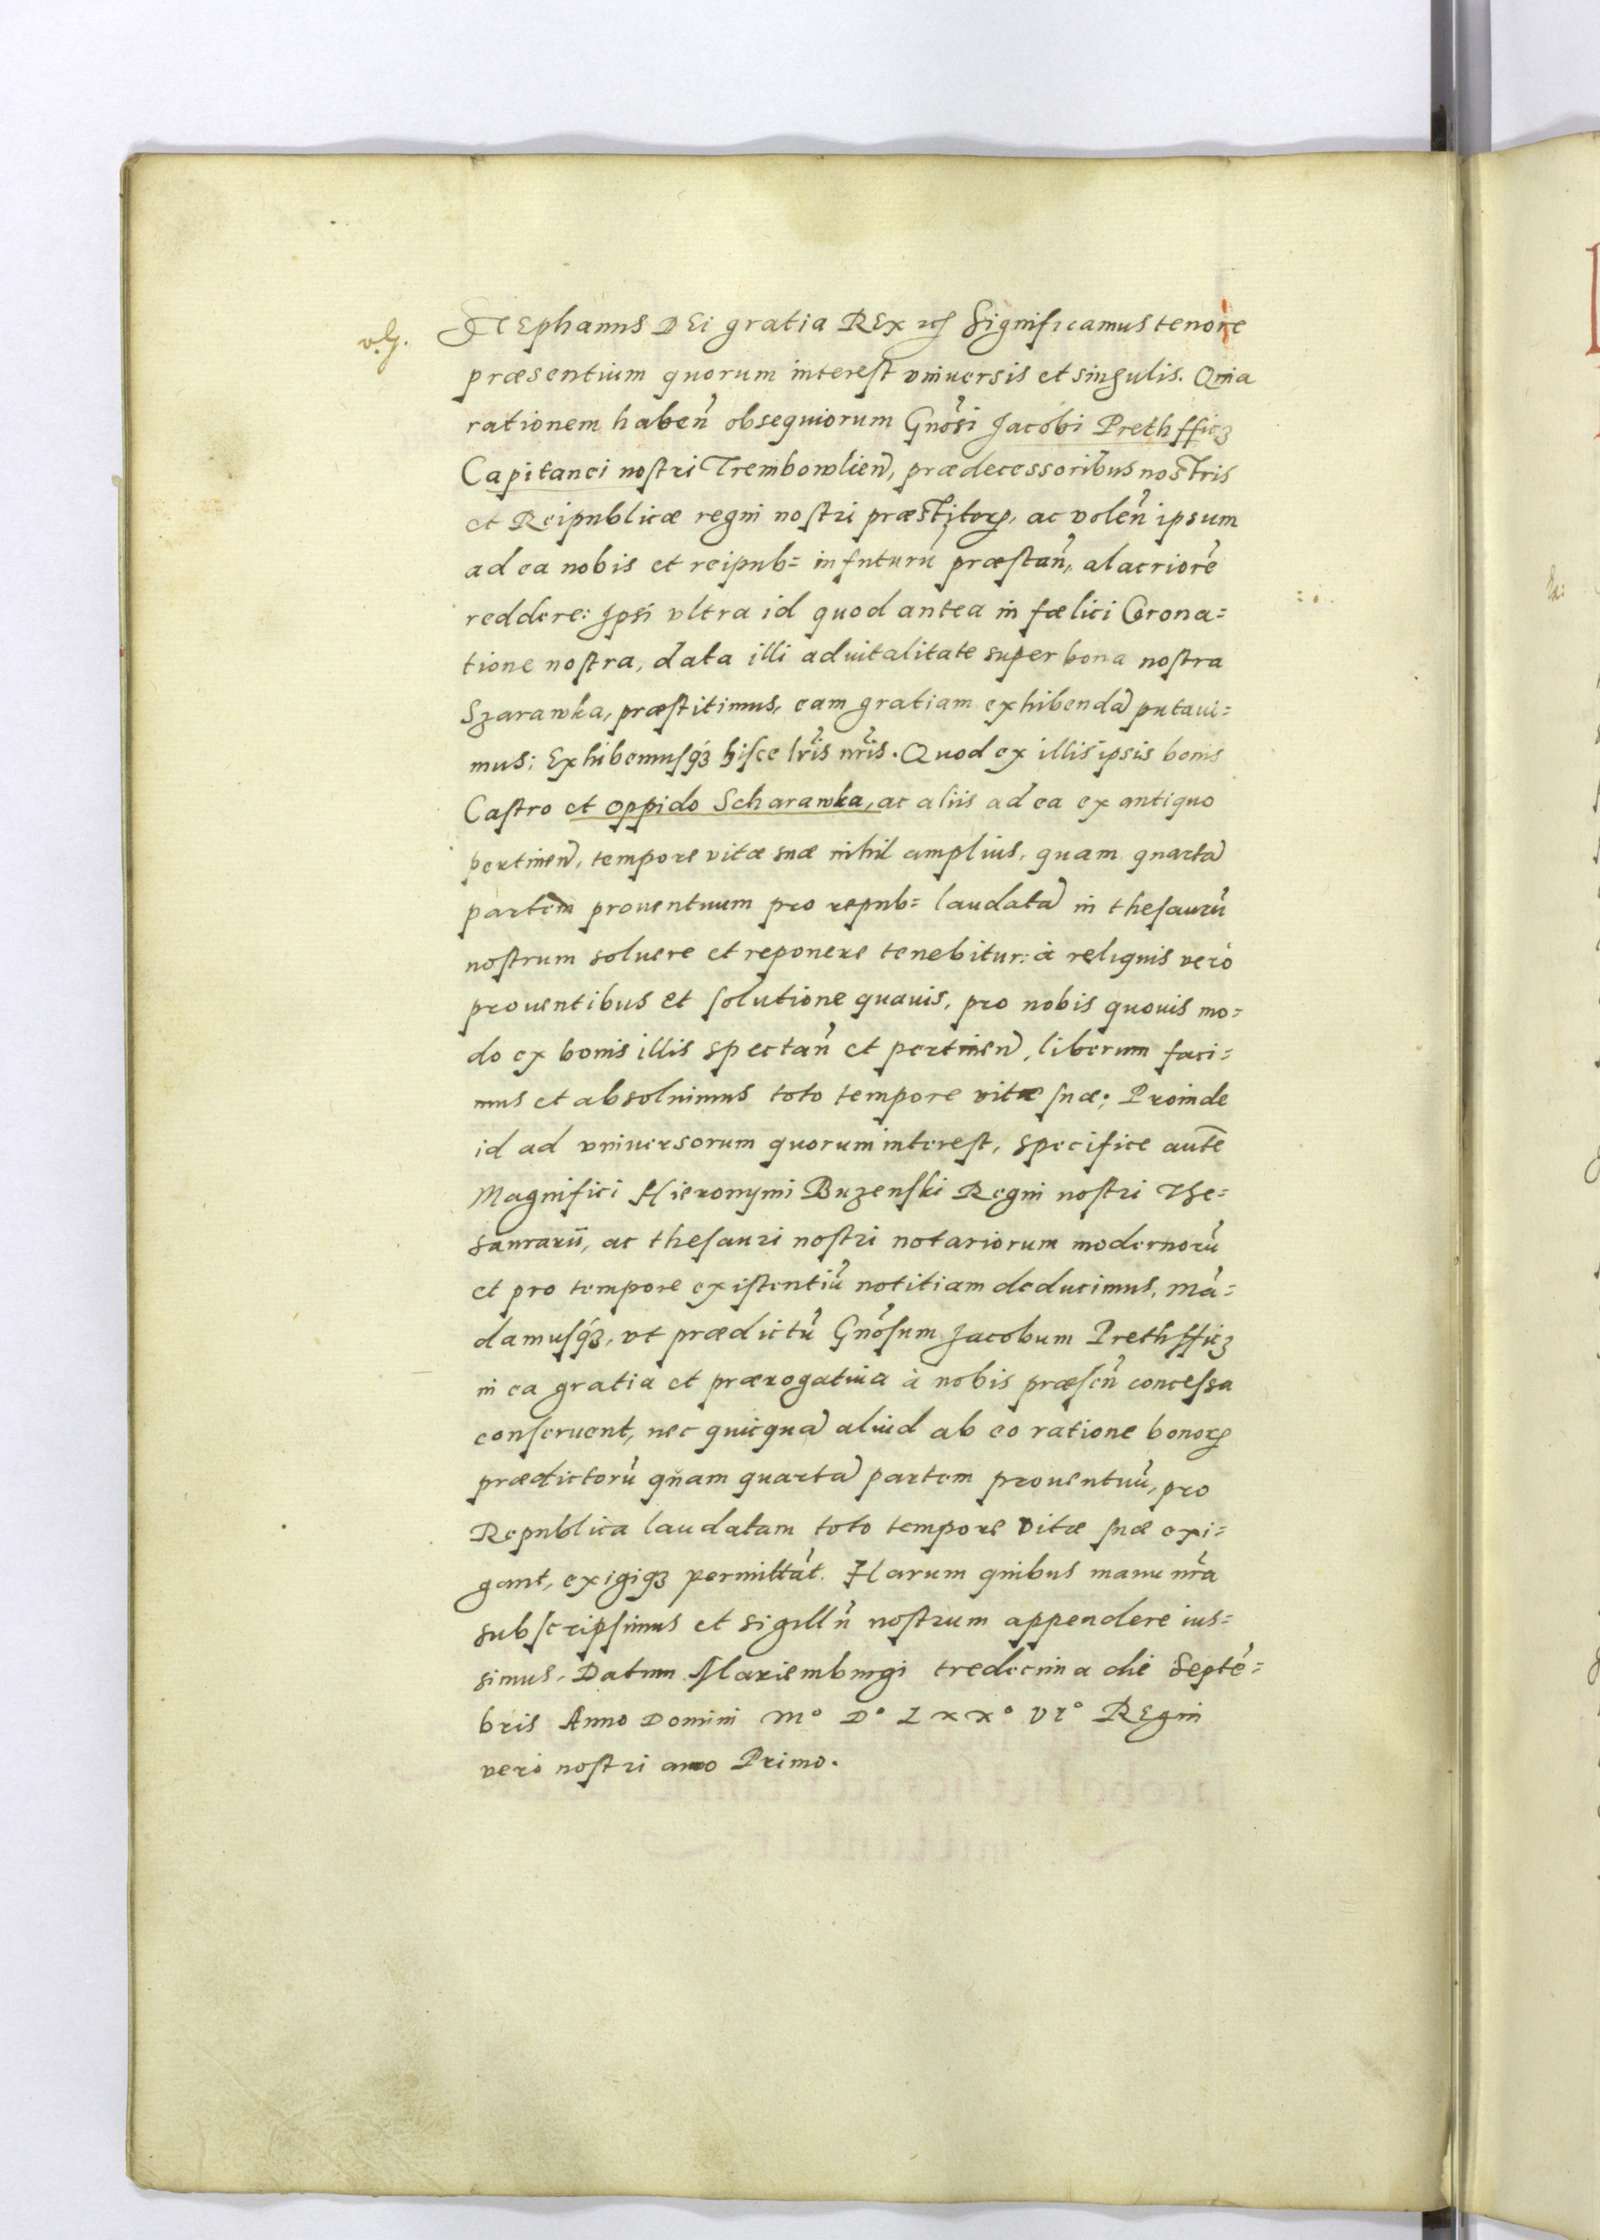 Stephanus DEi gratia REx etc Significamus tenore
præsentium quorum interest vniuersis et singulis. Quia
rationem haben̄ obsequiorum Gnōsi Jacobi Prethfficz
Capitanei nostri Trembowlien̄, prædecessoribus nostris
et Reipublicæ regni nostri præstitorꝝ, ac volen̄ ipsum
ad ea nobis et reipub= in futurū præstan̄, alacriorē
reddere: Ipsi vltra id quod antea in fælici Corona=
tione nostra, data illi aduitalitate super bona nostra
Szarawka, præstitimus, eam gratiam exhibendā putaui=
mus: Exhibemusqꝫ hisce lr̄is nr̄is. Quod ex illis ipsis bonis
Castro et oppido Scharawka, ac aliis ad ea ex antiquo
pertinen̄, tempore vitæ suæ nihil amplius, quam quartā
partem prouentuum pro repub= laudatā in thesaurū
nostrum soluere et reponere tenebitur: à reliquis verò
prouentibus et solutione quauis, pro nobis quouis mo=
do ex bonis illis spectan̄ et pertinen̄, liberum faci=
mus et absoluimus toto tempore vitæ suæ; Proinde
id ad vniuersorum quorum interest, specifice autē
Magnifici Hieronymi Buzenski Regni nostri The=
saurarii, ac thesauri nostri notariorum modernorū
et pro tempore existentiū notitiam deducimus, mā=
damusqꝫ, vt prædictū Gnōsum Jacobum Prethfficz
in ea gratia et prærogatiua à nobis præsen̄ concessa
conseruent, nec quicquā aliud ab eo ratione bonorꝝ
prædictorū quam quartā partem prouentuū, pro
Republica laudatam toto tempore vitæ suæ exi=
gant, exigiqꝫ permittāt. Harum quibus manu nr̄a
subscripsimus et sigillū nostrum appendere ius=
simus. Datum Mariemburgi tredecima die Septē=
bris Anno Domini M° D° LXX° VI° REgni
verò nostri anno Primo.